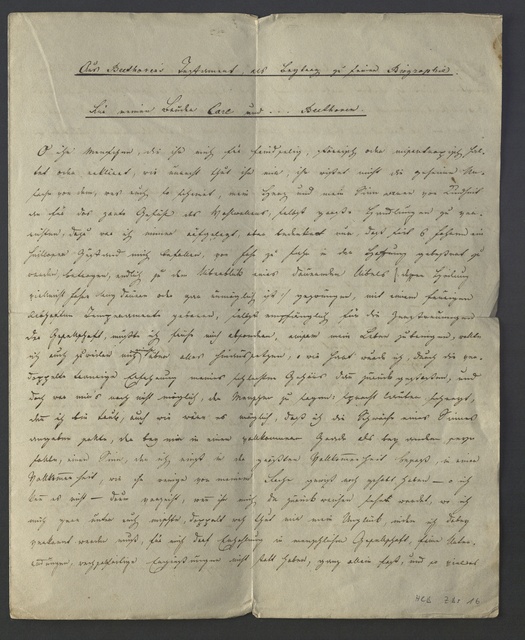 Aus Beethovens Testament, als Beytrag zu seiner Biographie.
An meine Brüder Carl und ... Beethoven.
O ihr Menschen, die ihr mich für feindselig, störrisch oder misantropisch hal-
tet oder erklärt, wie unrecht thut ihr mir, ihr wißt nicht die geheime Ur-
sache von dem, was euch so scheint, mein Herz und mein Sinn waren von Kindheit
an für das zarte Gefühl des Wohlwollens, selbst große Handlungen zu ver-
richten, dazu war ich immer aufgelegt, aber bedenket nur, daß seit 6 Jahren ein
heilloser Zustand mich befallen, von Jahr zu Jahr in der Hoffnung gebessert zu
werden, betrogen, endlich zu dem Überblick eines dauernden Übels (deßen Heilung
vielleicht Jahre dauern oder gar unmöglich ist) gezwungen, mit einem feurigen
lebhaften Temperamente geboren, selbst empfänglich für die Zerstreuungen
der Gesellschaft, mußte ich früh mich absondern, einsam mein Leben zubringen, wollte
ich auch zuweilen mich über alles hinaussetzen, o wie hart wurde ich durch die ver-
doppelte traurige Erfahrung meines schlechten Gehörs dann zurückgestoßen, und
doch war mirs noch nicht möglich, den Menschen zu sagen: sprecht lauter, schreyt,
denn ich bin taub, auch wie wäre es möglich, daß ich die Schwäche eines Sinnes
angeben sollte, der bey mir in einem vollkommnern Grade als bey andern seyn
sollte, einen Sinn, den ich einst in der größten Vollkommenheit besaß, in einer
Vollkommenheit, wie ihn wenige von meinem Fache gewiß noch gehabt haben – o ich
kann es nicht – drum verzeiht, wenn ihr mich da zurückweichen sehen werdet, wo ich
mich gern unter euch mischte, doppelt weh thut mir mein Unglück, indem ich dabey
verkannt werden muß, für mich darf Erholung in menschlicher Gesellschaft, feine Unter-
redungen, wechselseitige Ergießungen nicht statt haben, ganz allein fast, und so vieles
HCB